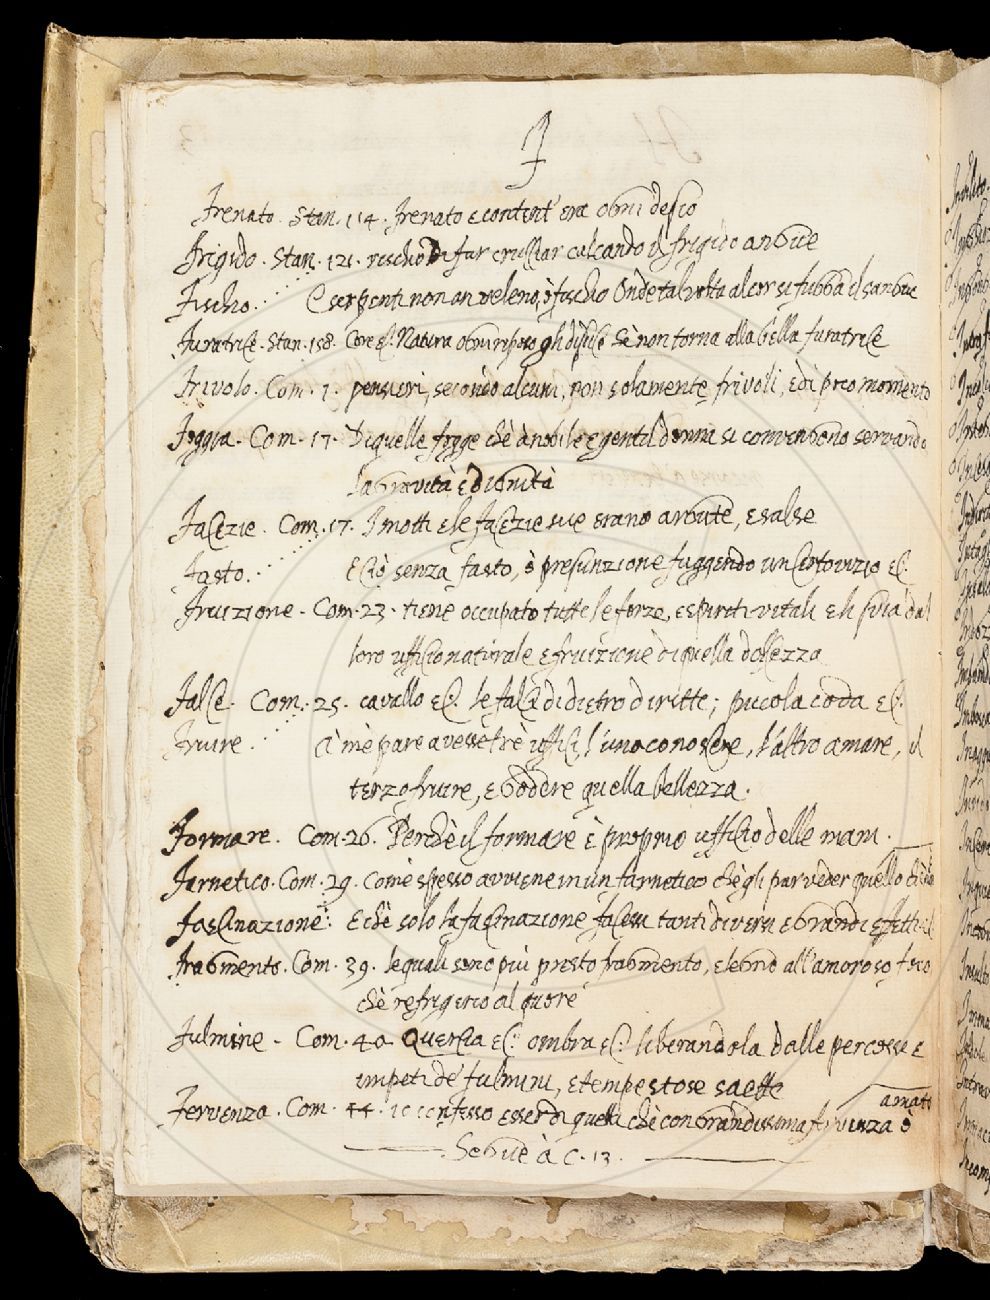 F
Frenato. Stan. 114. Frenato e content' era ogni desio
Frigido. Stan. 121. rischio di far crucciar calcando il frigido angue
Fischo. E serpenti non an veleno, ò fischio Onde talvolta al cor si fugga el sangue
Furatrice. Stan. 158. Core ec. Natura ogni riposo gli disdice Sè non torna alla bella furatrice
Frivolo. Com. 7. pensieri, secondo alcuni, non solamente frivoli, e di poco momento
Foggia. Com. 17. Di quelle fogge chè à nobile e gentil donna si convengono servando
la gravità e dignità
Facezie. Com. 17. I motti e le facezie sue erano argute, e salse
Fasto. E ciò senza fasto, ò presunzione fuggendo un certo vizio ec.
Fruizione. Com. 23. tiene occupato tutte le forze, e spiriti vitali e li svia dal
loro ufficio naturale e fruizione di quella dolcezza
Falce. Com. 25. cavallo ec. le falci di dietro diritte; piccola coda ec.
Fruire. à me pare avesse tre uffici, l'uno conoscere, l'altro amare, il
terzo fruire, e godere quella bellezza.
Formare. Com. 26. Perchè il formare è proprio ufficio delle mani.
Farnetico. Com. 29. Come spesso avviene in un farnetico chè gli par veder quello che
Fascinazione. E chè solo la fascinazione facesse tanti diversi e grandi effetti
Fragmento. Com. 39. le quali sono più presto fragmento, e legno all'amoroso foco
chè refrigerio al quore
Fulmine. Com. 40. Quercia ec. ombra ec. liberandola dalle percosse e
impeti de' fulmini, e tempestose saette
Fervenza. Com. 44. io confesso esser di quelli chè con grandissima fervenza ò
amato
Segue à C. 13.